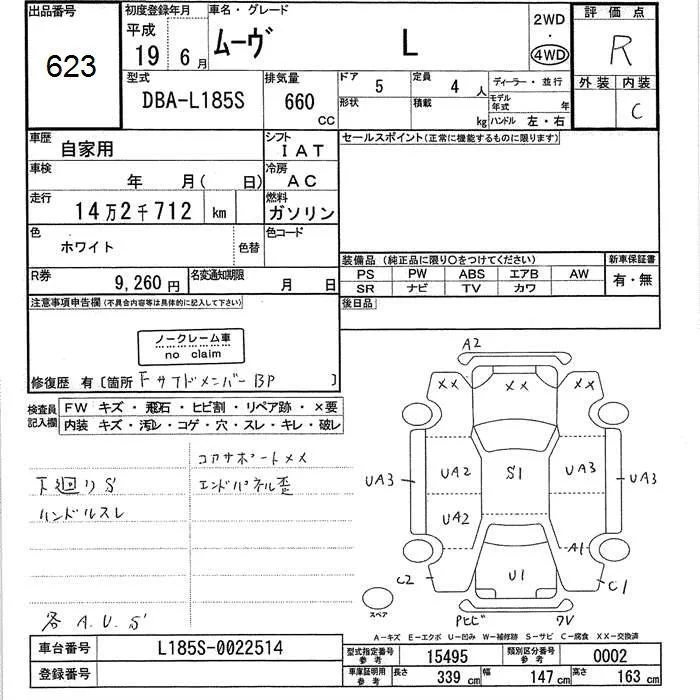 出品番号
623
初度登録年月
平成
19 6 月
車名・グレード
ムーヴ L
2WD
・
4WD
評価点
R
外装 内装
C
型式
DBA-L185S
排気量
660
cc
ドア 5
形状
定員 4 人
積載 kg
ディーラー・並行
モデル年式 年
ハンドル 左・右
車歴
自家用
シフト
IAT
車検
年 月( 日)
冷房
AC
走行
14万2千712 km
燃料
ガソリン
色
ホワイト
色替
色コード
R券
9,260円
名変通知期限
月 日
セールスポイント(正常に機能するものに限ります)
装備品(純正品に限り○をつけてください)
PS PW ABS エアB AW
SR ナビ TV カワ
新車保証書
有・無
後日品
注意事項申告欄(不具合内容等は具体的に記入して下さい)
ノークレーム車
no claim
修復歴 有〔箇所 Fサフドメンバー BP 〕
検査員記入欄
FW キズ・飛石・ヒビ割・リペア跡・×要
内装 キズ・汚レ・コゲ・穴・スレ・キレ・破レ
コアサポートメメ
下廻りS
エンドパネル歪
ハンドルスレ
各 A.U.S
A2
XX XX XX
UA3 UA2 S1 UA3 UA3
UA2
A1
C2 U1 C1
スペア
Pヒビ ワV
A-キズ E-エクボ U-凹み W-補修跡 S-サビ C-腐食 XX-交換済
車台番号
L185S-0022514
登録番号
型式指定番号
参考
15495
類別区分番号
参考
0002
車庫証明用
参考
長さ 339 cm 幅 147 cm 高さ 163 cm